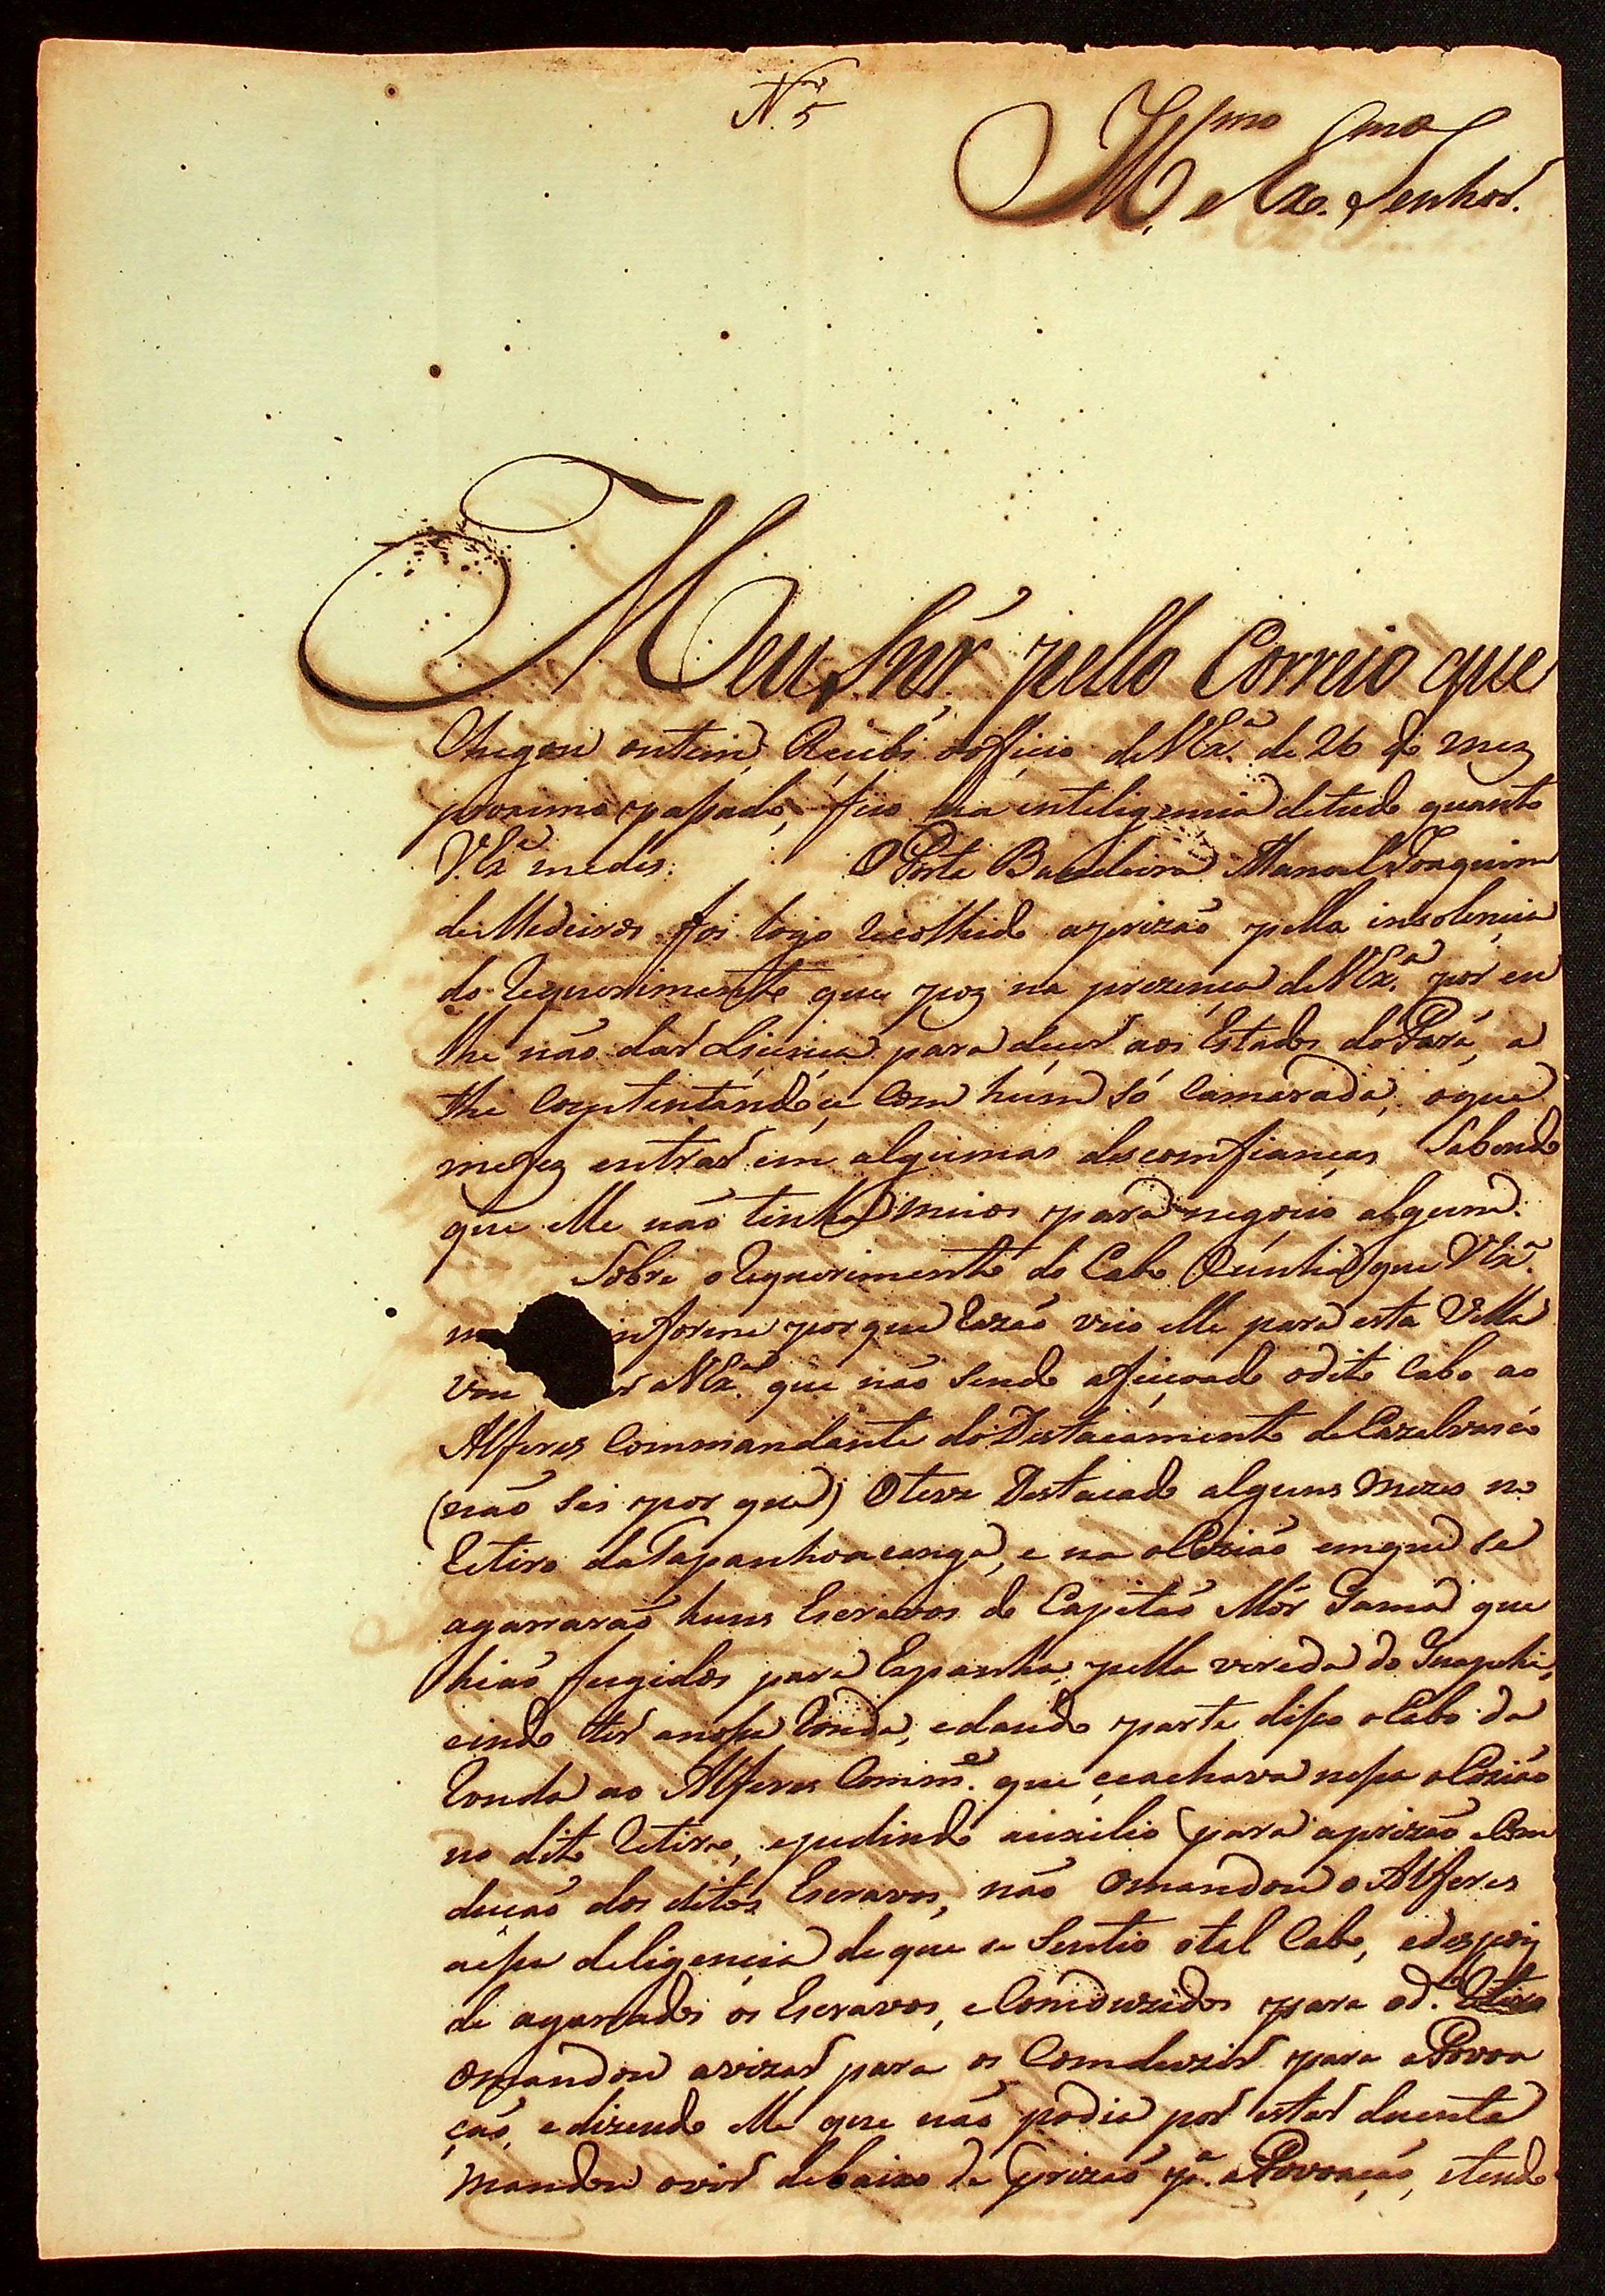 N.º 5
Ill.mo e Ex.mo Senhor.
Meu Snr. pello Correio que
Chegou ontem, Recebi o officio de V. Ex.ª de 26 do mez
proximo passado, fico na inteligencia de tudo quanto
V. Ex.ª me diz. O Porta Bandeira Manoel Joaquim
de Medeiros foi logo recolhido a prizaõ pella insolencia
do requerimento que poz na prezença de V. Ex.ª por eu
lhe naõ dar Licença para decer aos Estados do Pará, a
the contentandoçe Com húm só Camarada, o que
me fez entrar em algumas descomfianças Sabendo
que elle naõ tinha meios para negocio algum.
Sobre o requerimento do Cabo Cunha que V. Ex.ª
informe por que razaõ veio elle para esta Villa
vou a V. Ex.ª que naõ Sendo afeiçoado o dito Cabo ao
Alferes Commandante do Destacamento de Cazalvasco
(naõ Sei por que) O teve Destacado alguns mezes no
retiro da Tapanhoacanga, e na oCaziaõ em que se
agarraraõ huns Escravos do Capitaõ Mór Gama que
hiaõ fugidos para Espanha, pella vereda do
eindo ter a nossa ronda, e dando parte disso o Cabo da
ronda ao Alferes Comm.e que ceachava nessa oCaziaõ
no dito retiro, e pedindo auxilio para a prizaõ e Com
duçaõ dos ditos Escravos, naõ Omandou o Alferes
a essa deligencia de que se Sentio o tal Cabo, e despois
de agarrados os Escravos, e Comduzidos para o d.º retiro
Omandou avizar para os Comduzir para a Povoa
çaõ, e dizendo elle que naõ podia por estar duente
mandou o vir debaixo de prizaõ p.ª a Povoaçaõ, e tendo